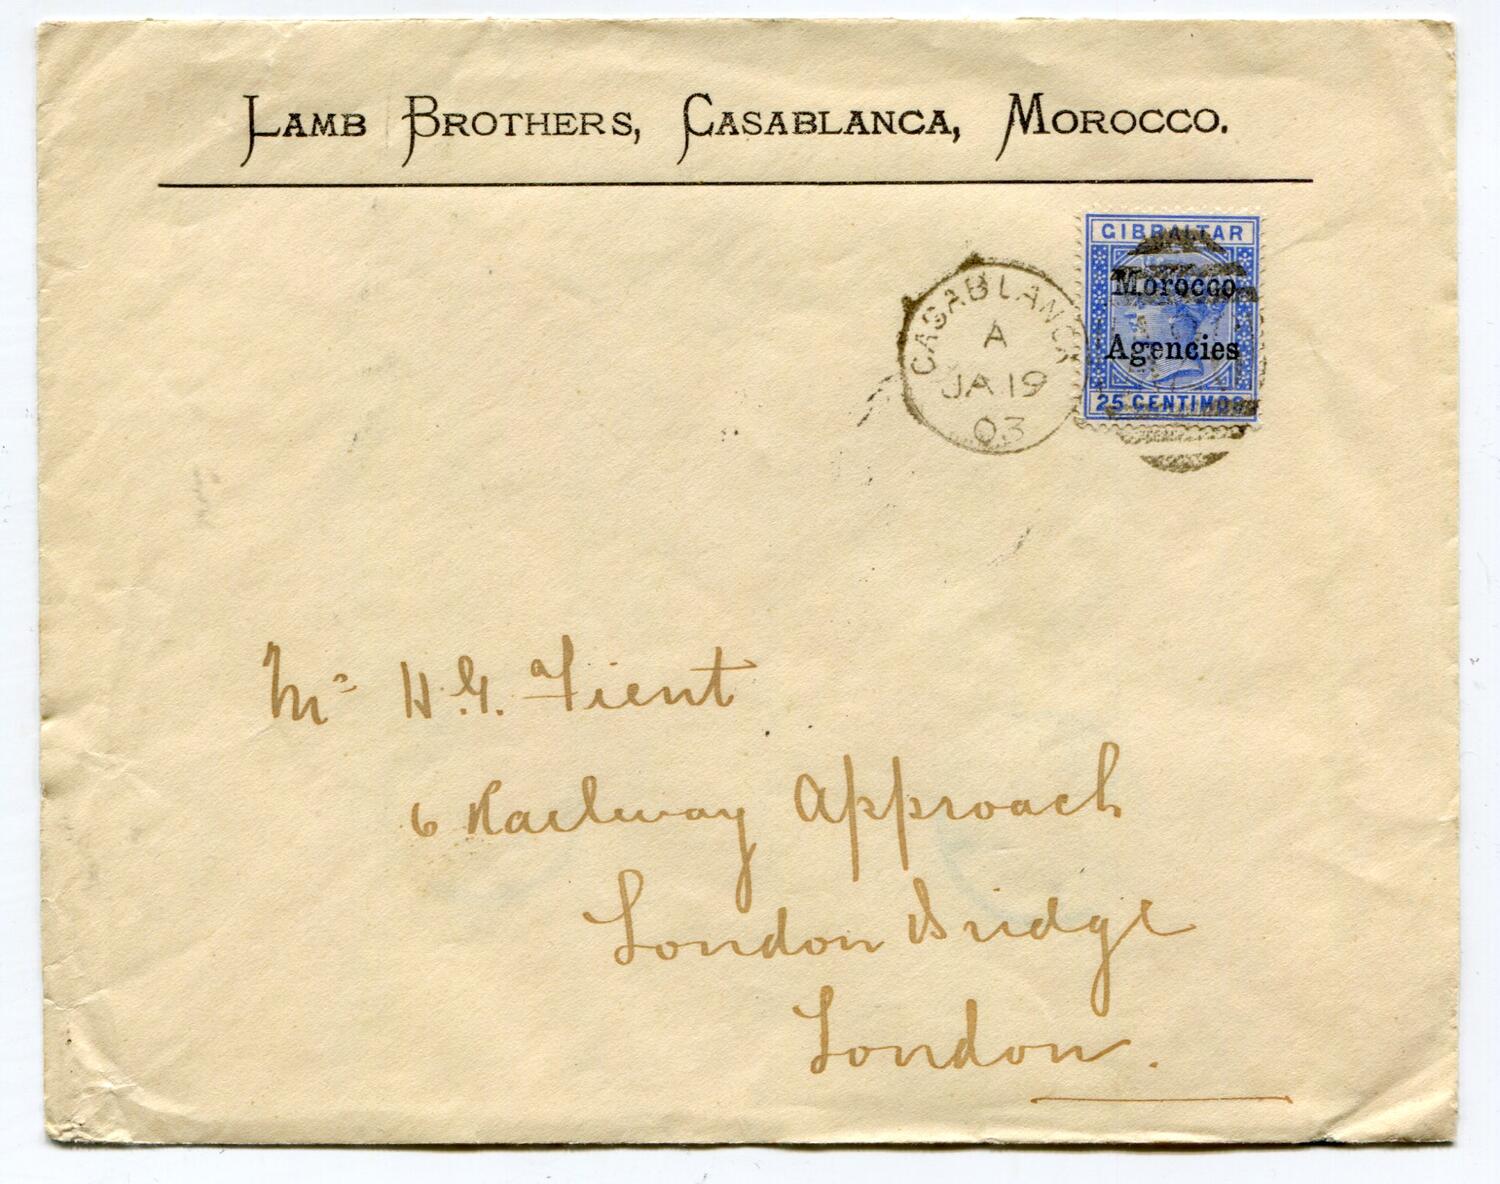 LAMB BROTHERS, CASABLANCA, MOROCCO.
GIBRALTAR
Morocco
Agencies
25 CENTIMOS
CASABLANCA
A
JA 19
03
Mr H. G.
6 Railway Approach
London Bridge
London.